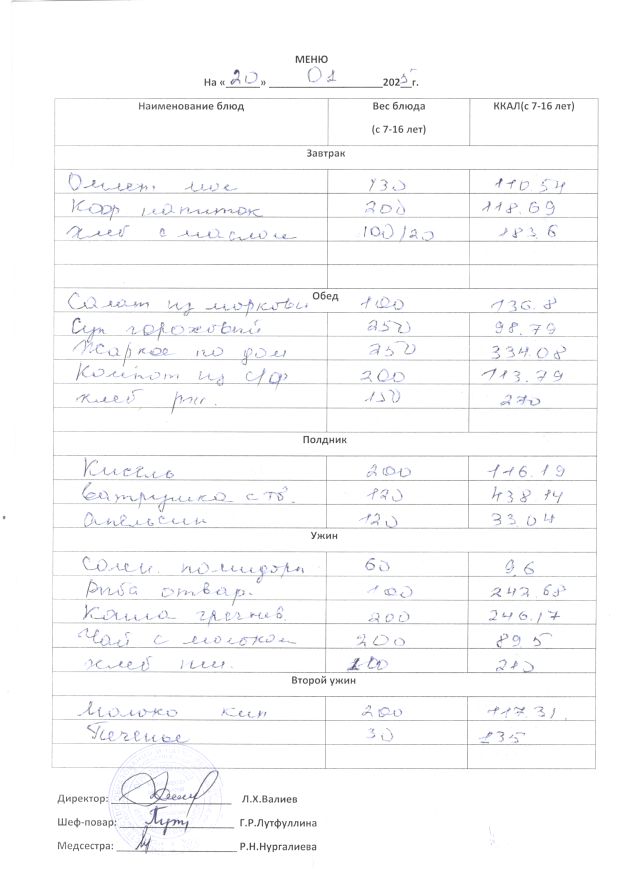 МЕНЮ
На « 20 » 01 2025 г.
Наименование блюд Вес блюда (с 7-16 лет) ККАЛ(с 7-16 лет)
Завтрак
Омлет 130 110.54
напиток 200 118.69
хлеб с маслом 100/20 183.6
Обед
Салат из моркови 100 136.8
Суп гороховый 250 98.79
Жаркое по дом 250 334.08
Компот из с/ф 200 113.79
хлеб рж. 150 270
Полдник
Кисель 200 116.19
Ватрушка с тв. 120 438.14
Апельсин 120 33.04
Ужин
Солен. помидоры 60 9.6
Рыба отвар. 100 242.68
Каша гречнев. 200 246.17
Чай с молоком 200 89.5
хлеб пш. 100 210
Второй ужин
Молоко кип 200 117.31
Печенье 30 135
Директор: Л.Х.Валиев
Шеф-повар: Г.Р.Лутфуллина
Медсестра: Р.Н.Нургалиева